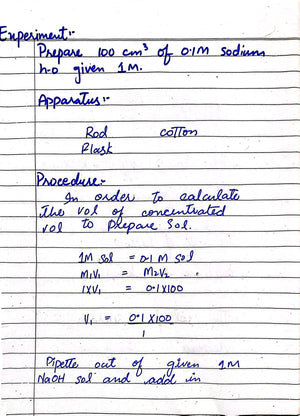 Experiment:-
Prepare 100 cm³ of 0.1M sodium
h-o given 1M.
Apparatus:-
Rod cotton
Flask
Procedure:-
In order to calculate
the vol of concentrated
vol to prepare sol.
1M sol = 0.1 M sol
M₁V₁ = M₂V₂
1XV₁ = 0.1X100
V₁ = 0.1 X100
1
Pipette out of given 1M
NaOH sol and add in